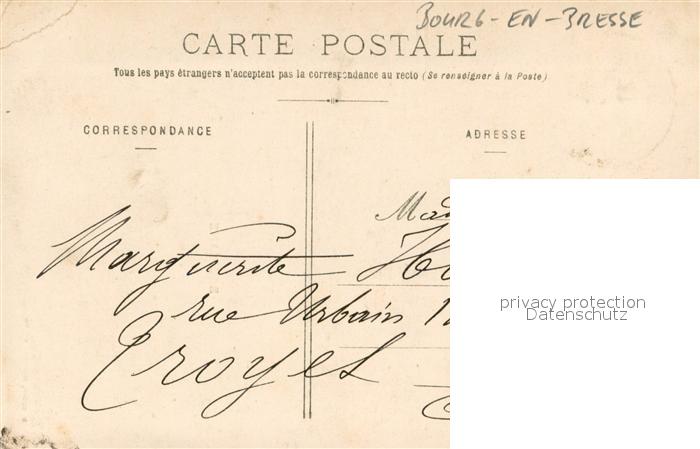 BOURG-EN-BRESSE
CARTE POSTALE
Tous les pays étrangers n'acceptent pas la correspondance au recto (Se renseigner à la Poste)
CORRESPONDANCE
ADRESSE
Mad
Marguerite
rue Urbain
Troyes
privacy protection
Datenschutz